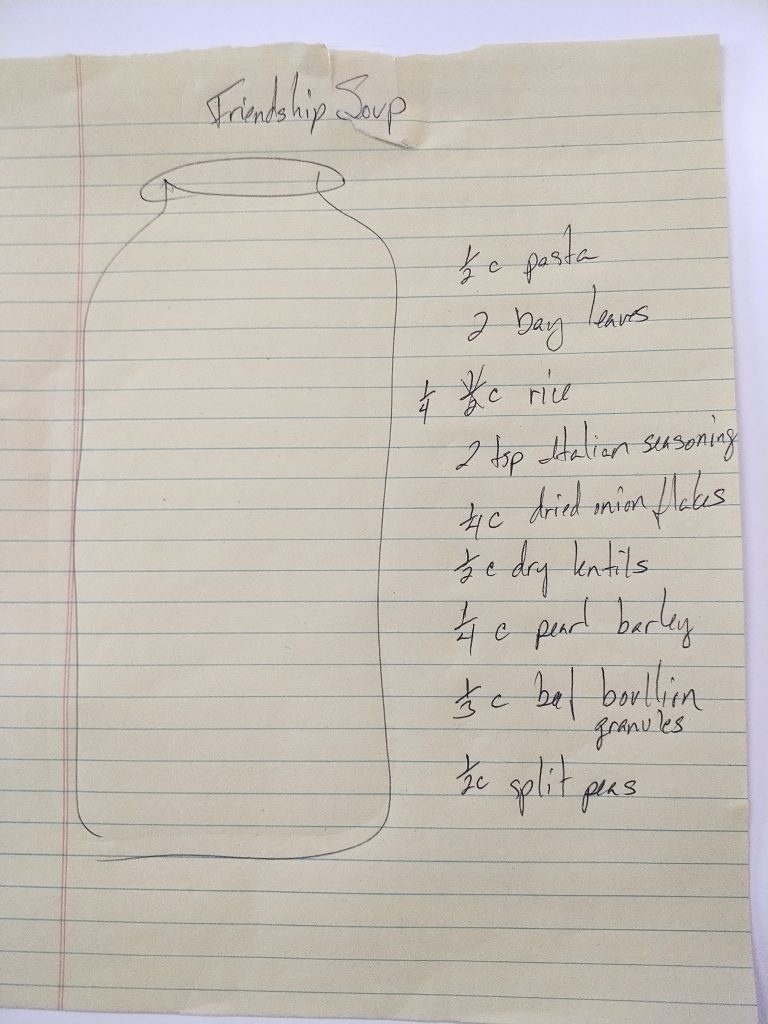 Friendship Soup
1/2 c pasta
2 bay leaves
1/4 1/2 c rice
2 tsp Italian seasoning
1/4 c dried onion flakes
1/2 c dry lentils
1/4 c pearl barley
1/3 c beef boullion
granules
1/2 c split peas